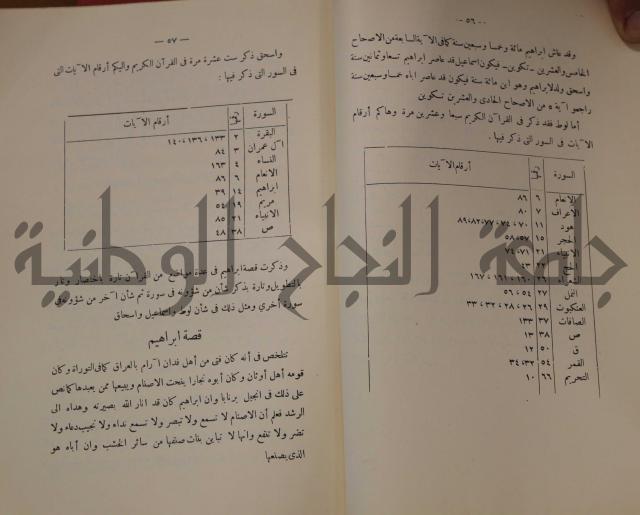 — ٥٦ —
وقد عاش ابراهيم مائة وخمسا وسبعين سنة كما فى الآية السابعة من الاصحاح
الخامس والعشرين - تكوين - فيكون اسماعيل قد عاصر ابراهيم تسعا وثمانين سنة
واسحق ولد لابراهيم وهو ابن مائة سنة فيكون قد عاصر اباه خمسا وسبعين سنة
راجعوا آية ٥ من الاصحاح الحادى والعشرين تكوين
أما لوط فقد ذكر فى القرآن الكريم سبعا وعشرين مرة وهاكم أرقام
الآيات فى السور التى ذكر فيها .
السورة رقمها أرقام الآيات
الانعام ٦ ٨٦
الاعراف ٧ ٨٠
هود ١١ ٧٠ ، ٧٤ ، ٧٧ ، ٨٢ ، ٨٩
الحجر ١٥ ٥٨ ، ٥٧
الانبياء ٢١ ٧١ ، ٧٤
الحج ٢٢ ٤٣
الشعراء ٢٦ ١٦٠ ، ١٦١ ، ١٦٧
النمل ٢٧ ٥٤ ، ٥٦
العنكبوت ٢٩ ٢٦ ، ٢٨ ، ٣٢ ، ٣٣
الصافات ٣٧ ١٣٣
ص ٣٨ ١٣
ق ٥٠ ١٢
القمر ٥٤ ٣٣ ، ٣٤
التحريم ٦٦ ١٠
— ٥٧ —
واسحق ذكر ست عشرة مرة فى القرآن الكريم واليكم أرقام الآيات التى
فى السور التى ذكر فيها :
السورة رقمها أرقام الآيات
البقرة ٢ ١٣٣ ، ١٣٦ ، ١٤٠
آل عمران ٣ ٨٤
النساء ٤ ١٦٣
الانعام ٦ ٨٦
ابراهيم ١٤ ٣٩
مريم ١٩ ٥٤
الانبياء ٢١ ٨٥
ص ٣٨ ٤٨
وذكرت قصة ابراهيم فى عدة مواضع من القرآن تارة باختصار وتارة
بالتطويل وتارة يذكر شأن من شؤونه فى سورة ثم شأن آخر من شؤونه فى
سورة أخرى ومثل ذلك فى شأن لوط واسماعيل واسحاق
قصة ابراهيم
تتلخص فى أنه كان فتى من أهل فدان آرام بالعراق كما فى التوراة وكان
قومه أهل أوثان وكان أبوه نجارا ينحت الاصنام ويبيعها ممن يعبدها كما نص
على ذلك فى انجيل برنابا وان ابراهيم كان قد انار الله بصيرته وهداه الى
الرشد فعلم أن الاصنام لا تسمع ولا تبصر ولا تسمع نداء ولا تجيب دعاء ولا
تضر ولا تنفع وانها لا تباين بنات صنفها من سائر الخشب وان أباه هو
الذى يصنعها
جامعة النجاح الوطنية